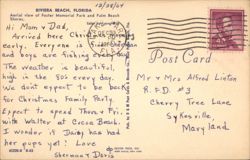 RIVIERA BEACH, FLORIDA
12/28/64
Aerial view of Foster Memorial Park and Palm Beach
Shores.
Hi Mom & Dad,
Arrived here
early. Everyone is fine.
and boys are fishing every day
The weather is beautiful,
high in the 80s every day.
We don't expect to be back
for Christmas Family Party.
Expect to spend Thurs & Fri.
with Walter at Cocoa Beach.
I wonder if Daisy has had
her pups yet! Love
Sherman & Doris
Post Card
Mr & Mrs Alfred Linton
R.F.D. #3
Cherry Tree Lane
Sykesville,
Maryland